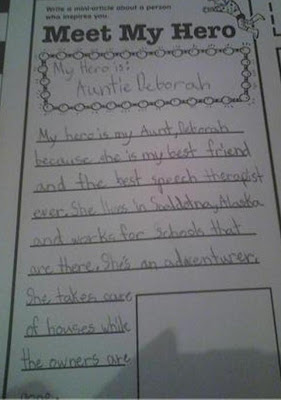 Write a mini-article about a person
who inspires you.
Meet My Hero
My Hero is:
Auntie Deborah
My hero is my Aunt, Deborah
because she is my best friend
and the best speech therapist
ever. She lives in Soldotna, Alaska
and works for schools that
are there. She's an adventurer.
She takes care
of houses while
the owners are
gone.